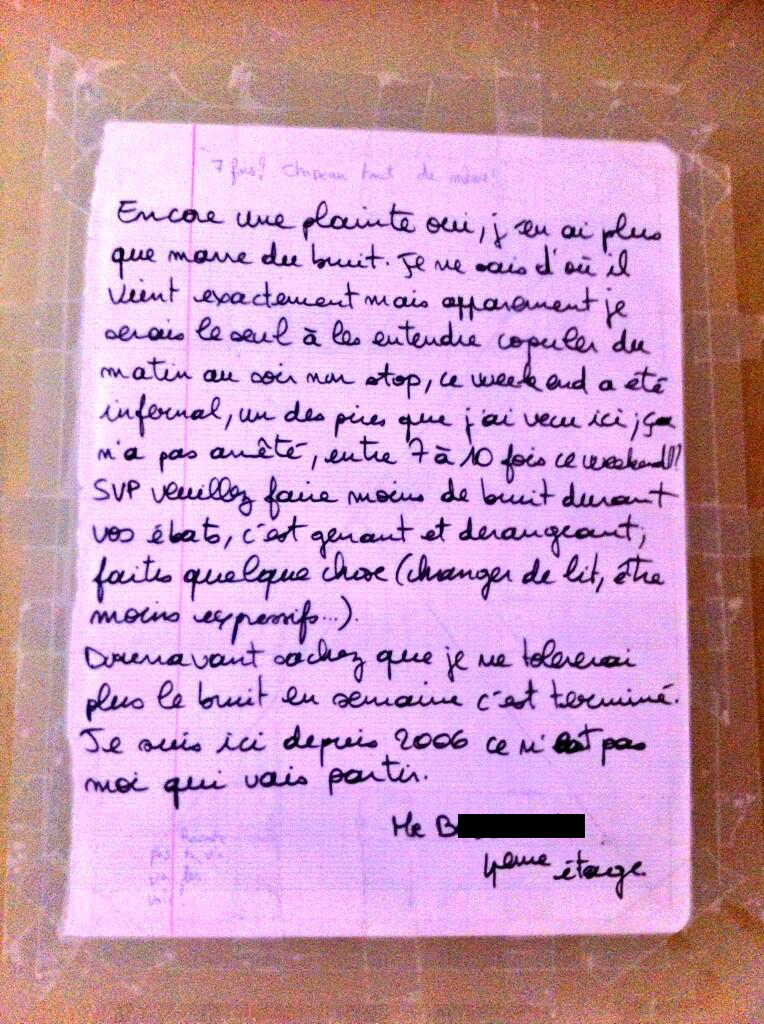 7 fois? Chapeau tout de même!
Encore une plainte oui, j'en ai plus
que marre du bruit. Je ne sais d'où il
vient exactement mais apparement je
serais le seul à les entendre copuler du
matin au soir non stop, ce weekend a été
infernal, un des pires que j'ai vecu ici, ça
n'a pas arrêté, entre 7 à 10 fois ce weekend!?
SVP veuillez faire moins de bruit durant
vos ébats, c'est genant et derangeant,
faites quelque chose (changer de lit, être
moins expressifs...).
Dorenavant sachez que je ne tolererai
plus le bruit en semaine c'est terminé.
Je suis ici depuis 2006 ce n'est pas
moi qui vais partir.
Mr B
4eme étage
pas ta vie
va les
voir!